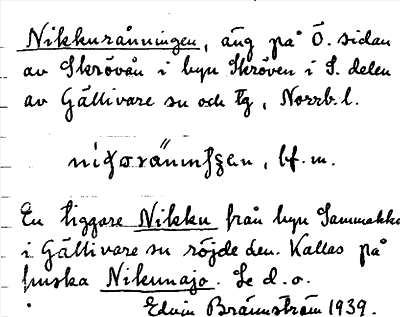 Nikkuränningen, äng på Ö. sidan
av Skrövån i byn Skröven i S. delen
av Gällivare sn och tg, Norrb. l.
bf. m.
En tiggare Nikku från byn Sammakko
i Gällivare sn röjde den. Kallas på
finska Nikunajo. Se d. o.
Edvin Brännström 1939.